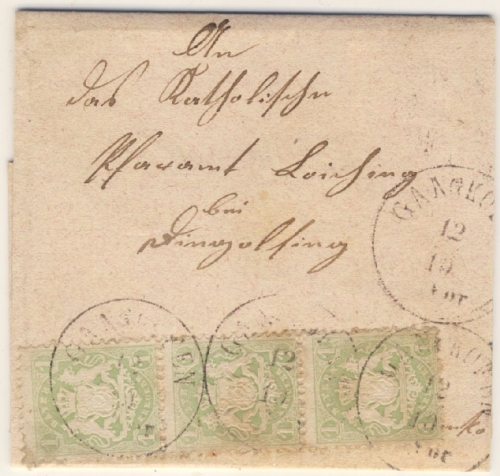 An
das Katholische
Pfaramt Loiching
bei
Dingolfing
GAANGKO
12
10
Vor
1
1
1
12